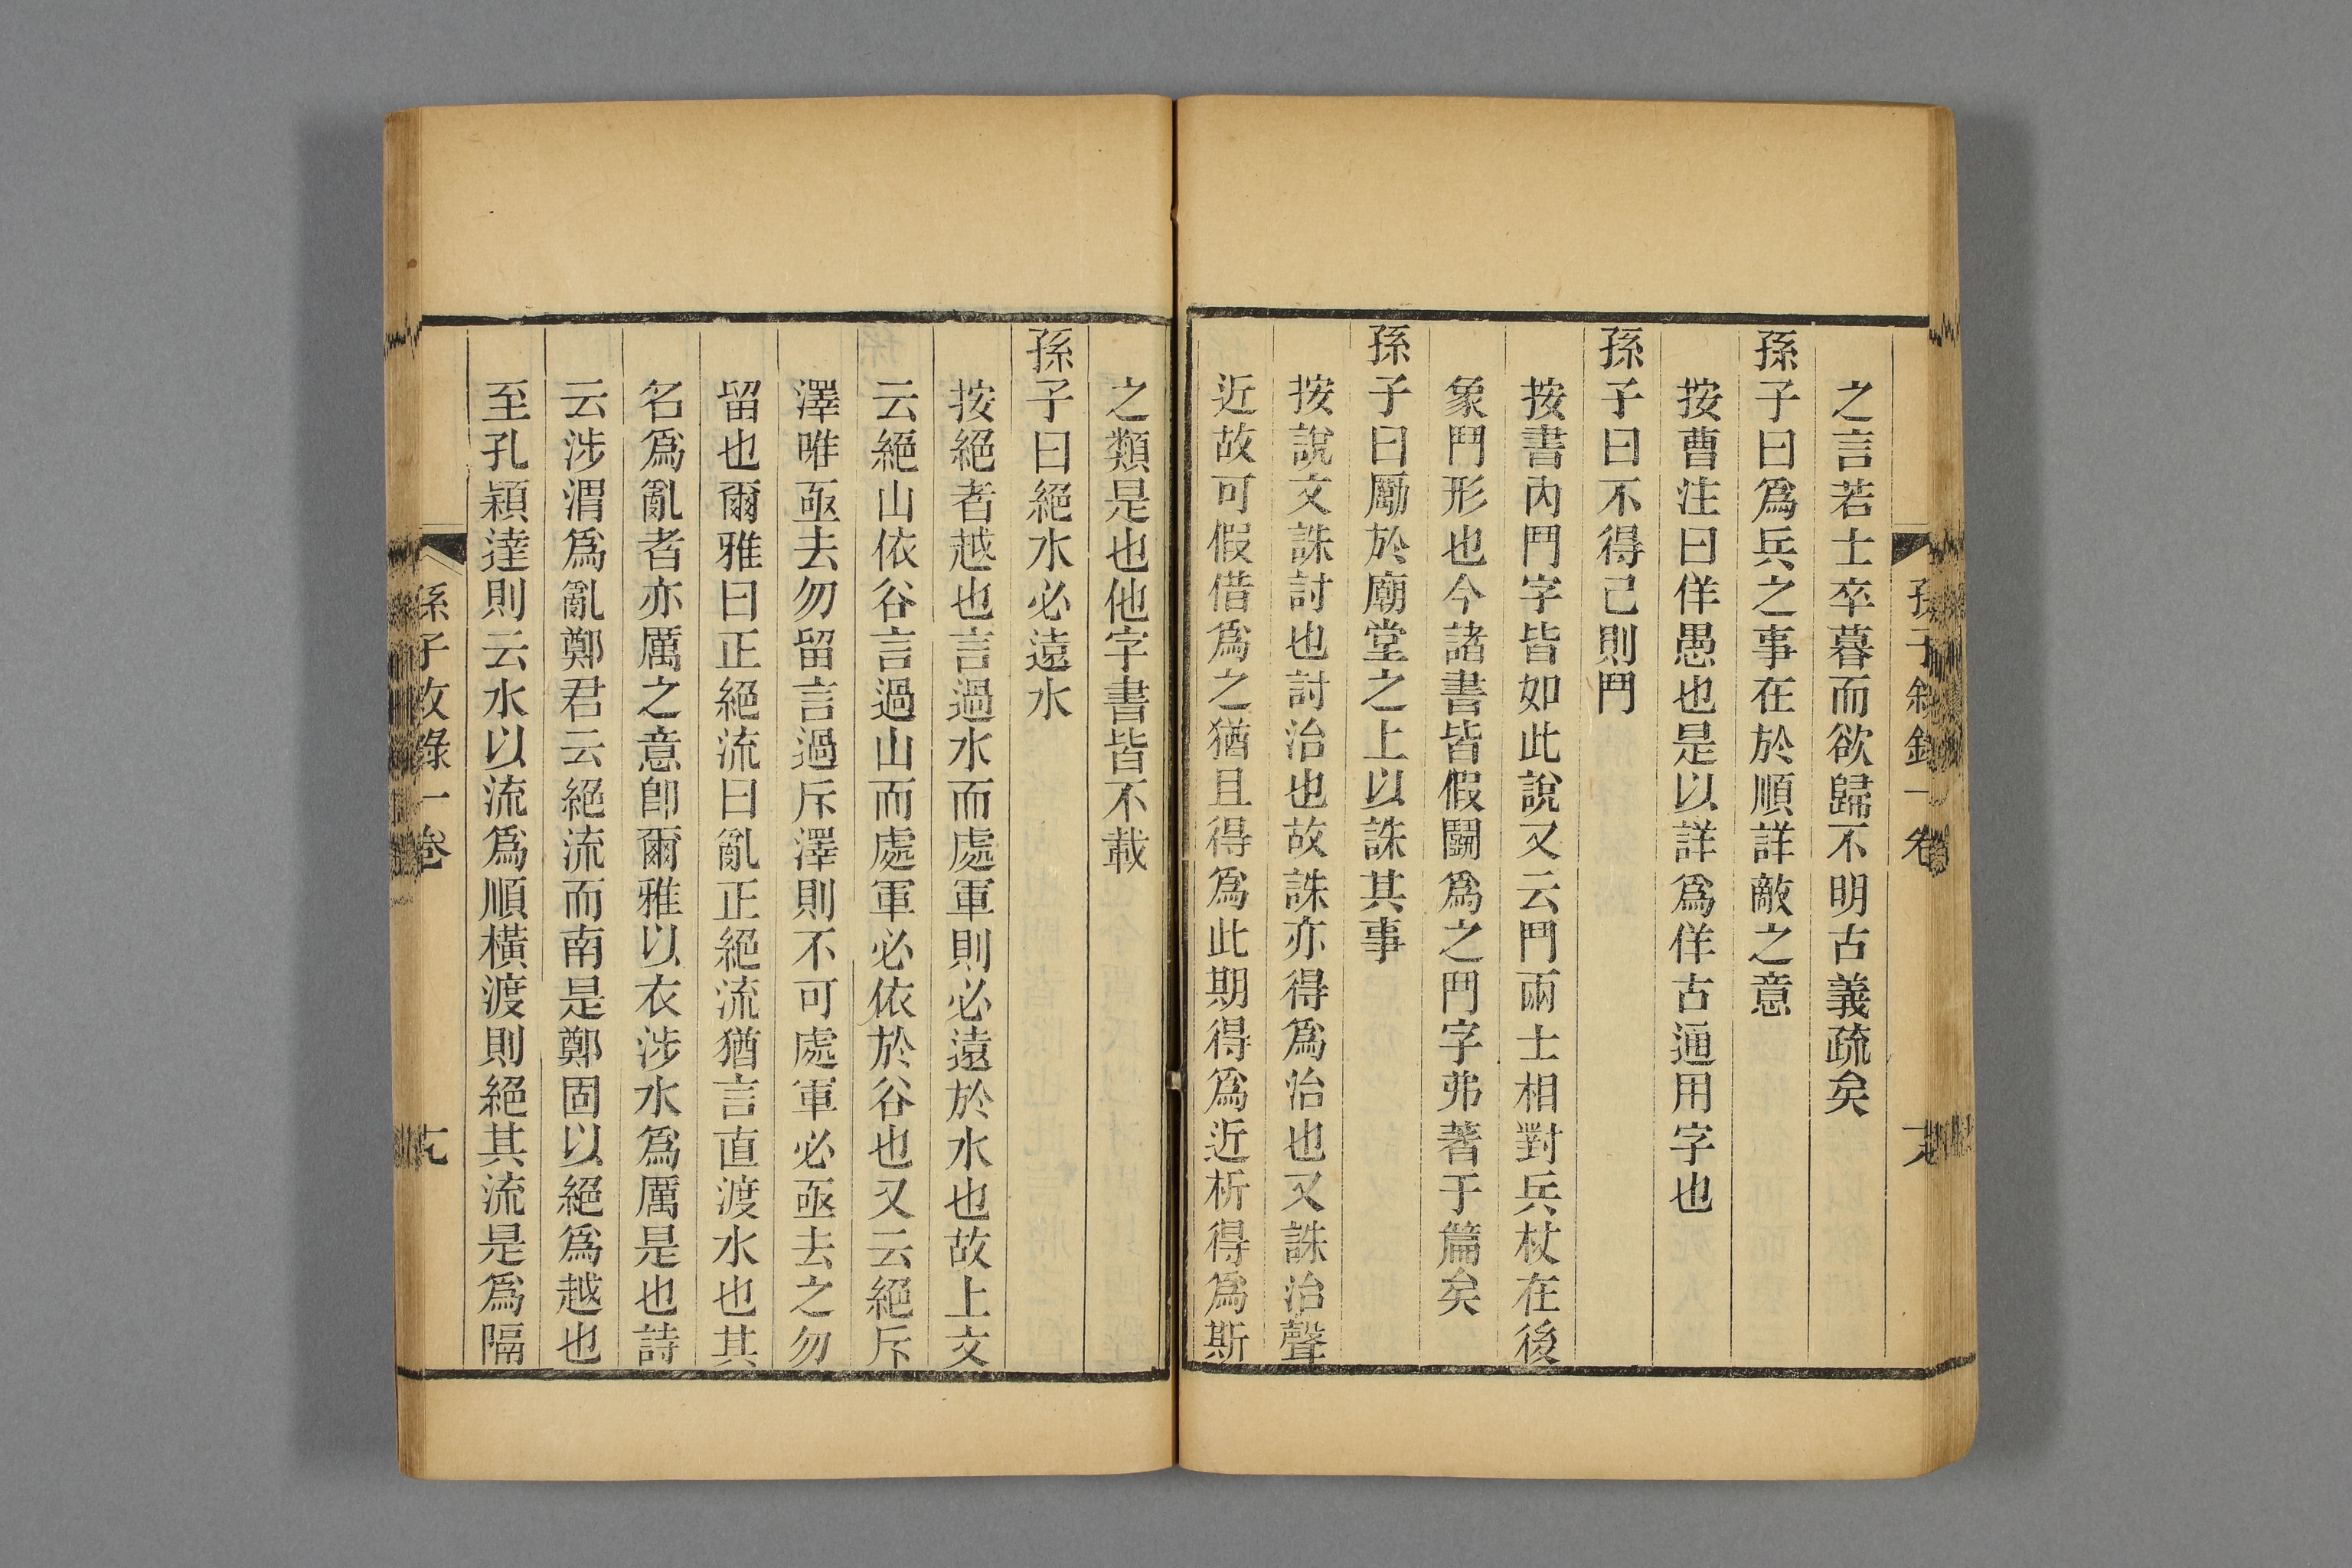 之言若士卒暮而欲歸不明古義疏矣
孫子曰爲兵之事在於順詳敵之意
按曹注曰佯愚也是以詳爲佯古通用字也
孫子曰不得已則鬥
按書內鬥字皆如此說文云鬥兩士相對兵杖在後
象鬥形也今諸書皆假鬭爲之鬥字弗著于篇矣
孫子曰勵於廟堂之上以誅其事
按說文誅討也討治也故誅亦得爲治也又誅治聲
近故可假借爲之猶且得爲此期得爲近析得爲斯
之類是也他字書皆不載
孫子曰絕水必遠水
按絕者越也言過水而處軍則必遠於水也故上文
云絕山依谷言過山而處軍必依於谷也又云絕斥
澤唯亟去勿留言過斥澤則不可處軍必亟去之勿
留也爾雅曰正絕流曰亂正絕流猶言直渡水也其
名爲亂者亦厲之意卽爾雅以衣涉水爲厲是也詩
云涉渭爲亂鄭君云絕流而南是鄭固以絕爲越也
至孔穎達則云水以流爲順橫渡則絕其流是爲隔
孫子攷錄一卷